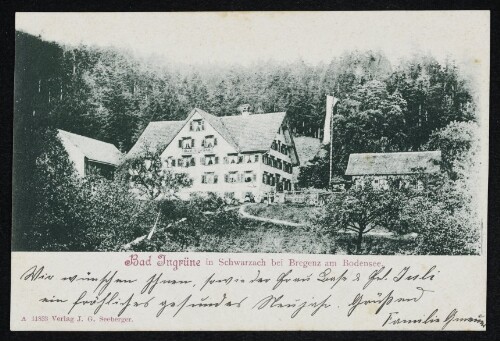 Bad Ingrüne in Schwarzach bei Bregenz am Bodensee.
Wir wünschen Ihnen, sowie der Frau Base & Frl.
ein fröhliches gesundes Neujahr. Grüßend
Familie
A 31825 Verlag J. G. Seeberger.